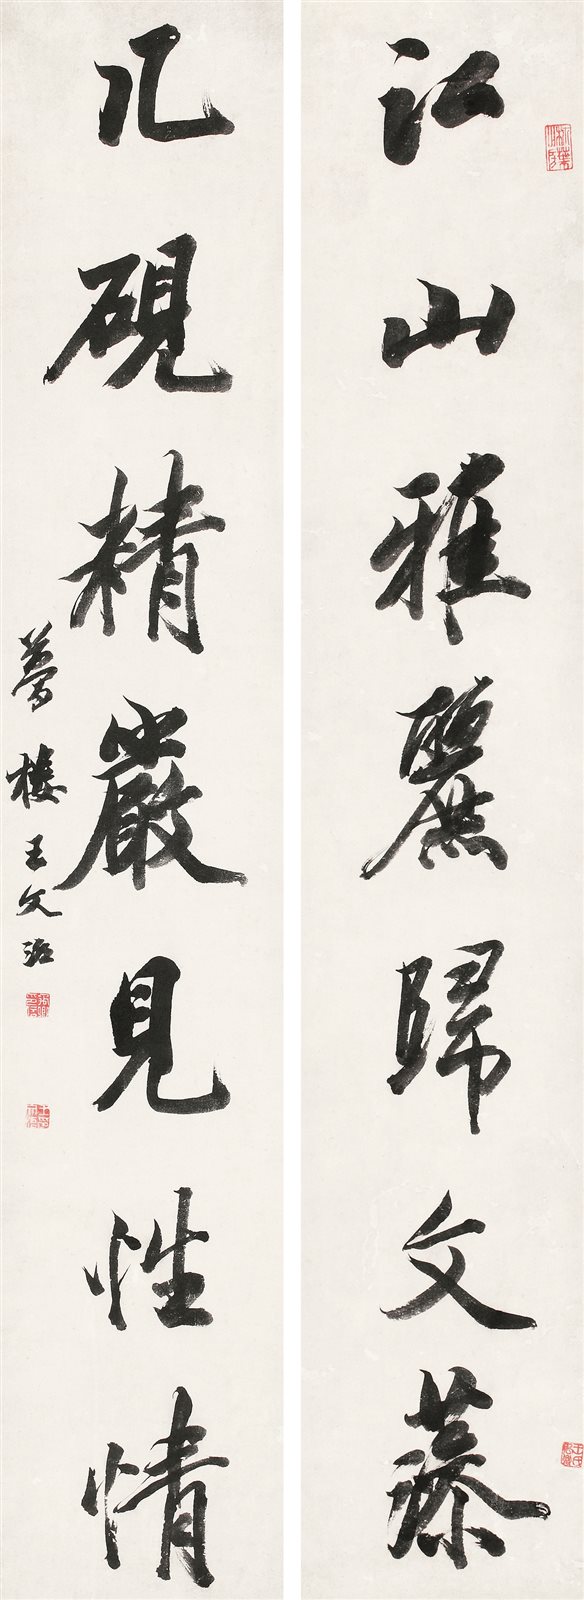 江山雅麗歸文藻
几硯精嚴見性情
夢樓王文治